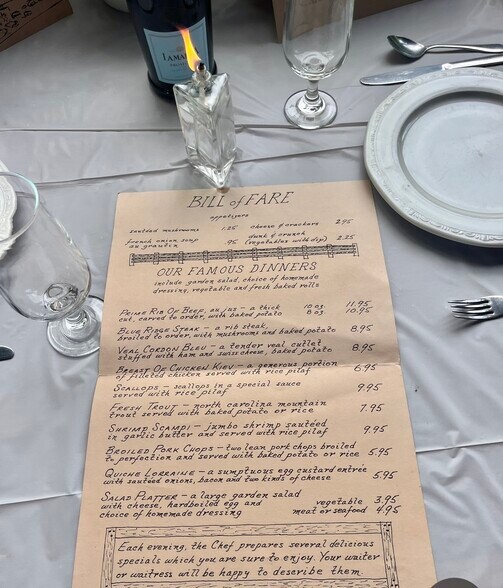 BILL of FARE
appetizers
sauteed mushrooms 1.25 cheese & crackers 2.95
french onion soup au gratin .95 dunk & crunch (vegetables with dip) 2.25
OUR FAMOUS DINNERS
include garden salad, choice of homemade
dressing, vegetable and fresh baked rolls
PRIME RIB OF BEEF, au jus - a thick 10 oz. 11.95
cut, carved to order, with baked potato 8 oz. 10.95
BLUE RIDGE STEAK - a rib steak,
broiled to order, with mushrooms and baked potato 8.95
VEAL CORDON BLEU - a tender veal cutlet
stuffed with ham and swiss cheese, baked potato 8.95
BREAST OF CHICKEN KIEV - a generous portion
of filleted chicken served with rice pilaf 6.95
SCALLOPS - scallops in a special sauce
served with rice pilaf 9.95
FRESH TROUT - north carolina mountain
trout served with baked potato or rice 7.95
SHRIMP SCAMPI - jumbo shrimp sautéed
in garlic butter and served with rice pilaf 9.95
BROILED PORK CHOPS - two lean pork chops broiled
to perfection and served with baked potato or rice 5.95
QUICHE LORRAINE - a sumptuous egg custard entrée
with sautéed onions, bacon and two kinds of cheese 5.95
SALAD PLATTER - a large garden salad
with cheese, hardboiled egg and vegetable 3.95
choice of homemade dressing meat or seafood 4.95
Each evening, the Chef prepares several delicious
specials which you are sure to enjoy. Your waiter
or waitress will be happy to describe them.